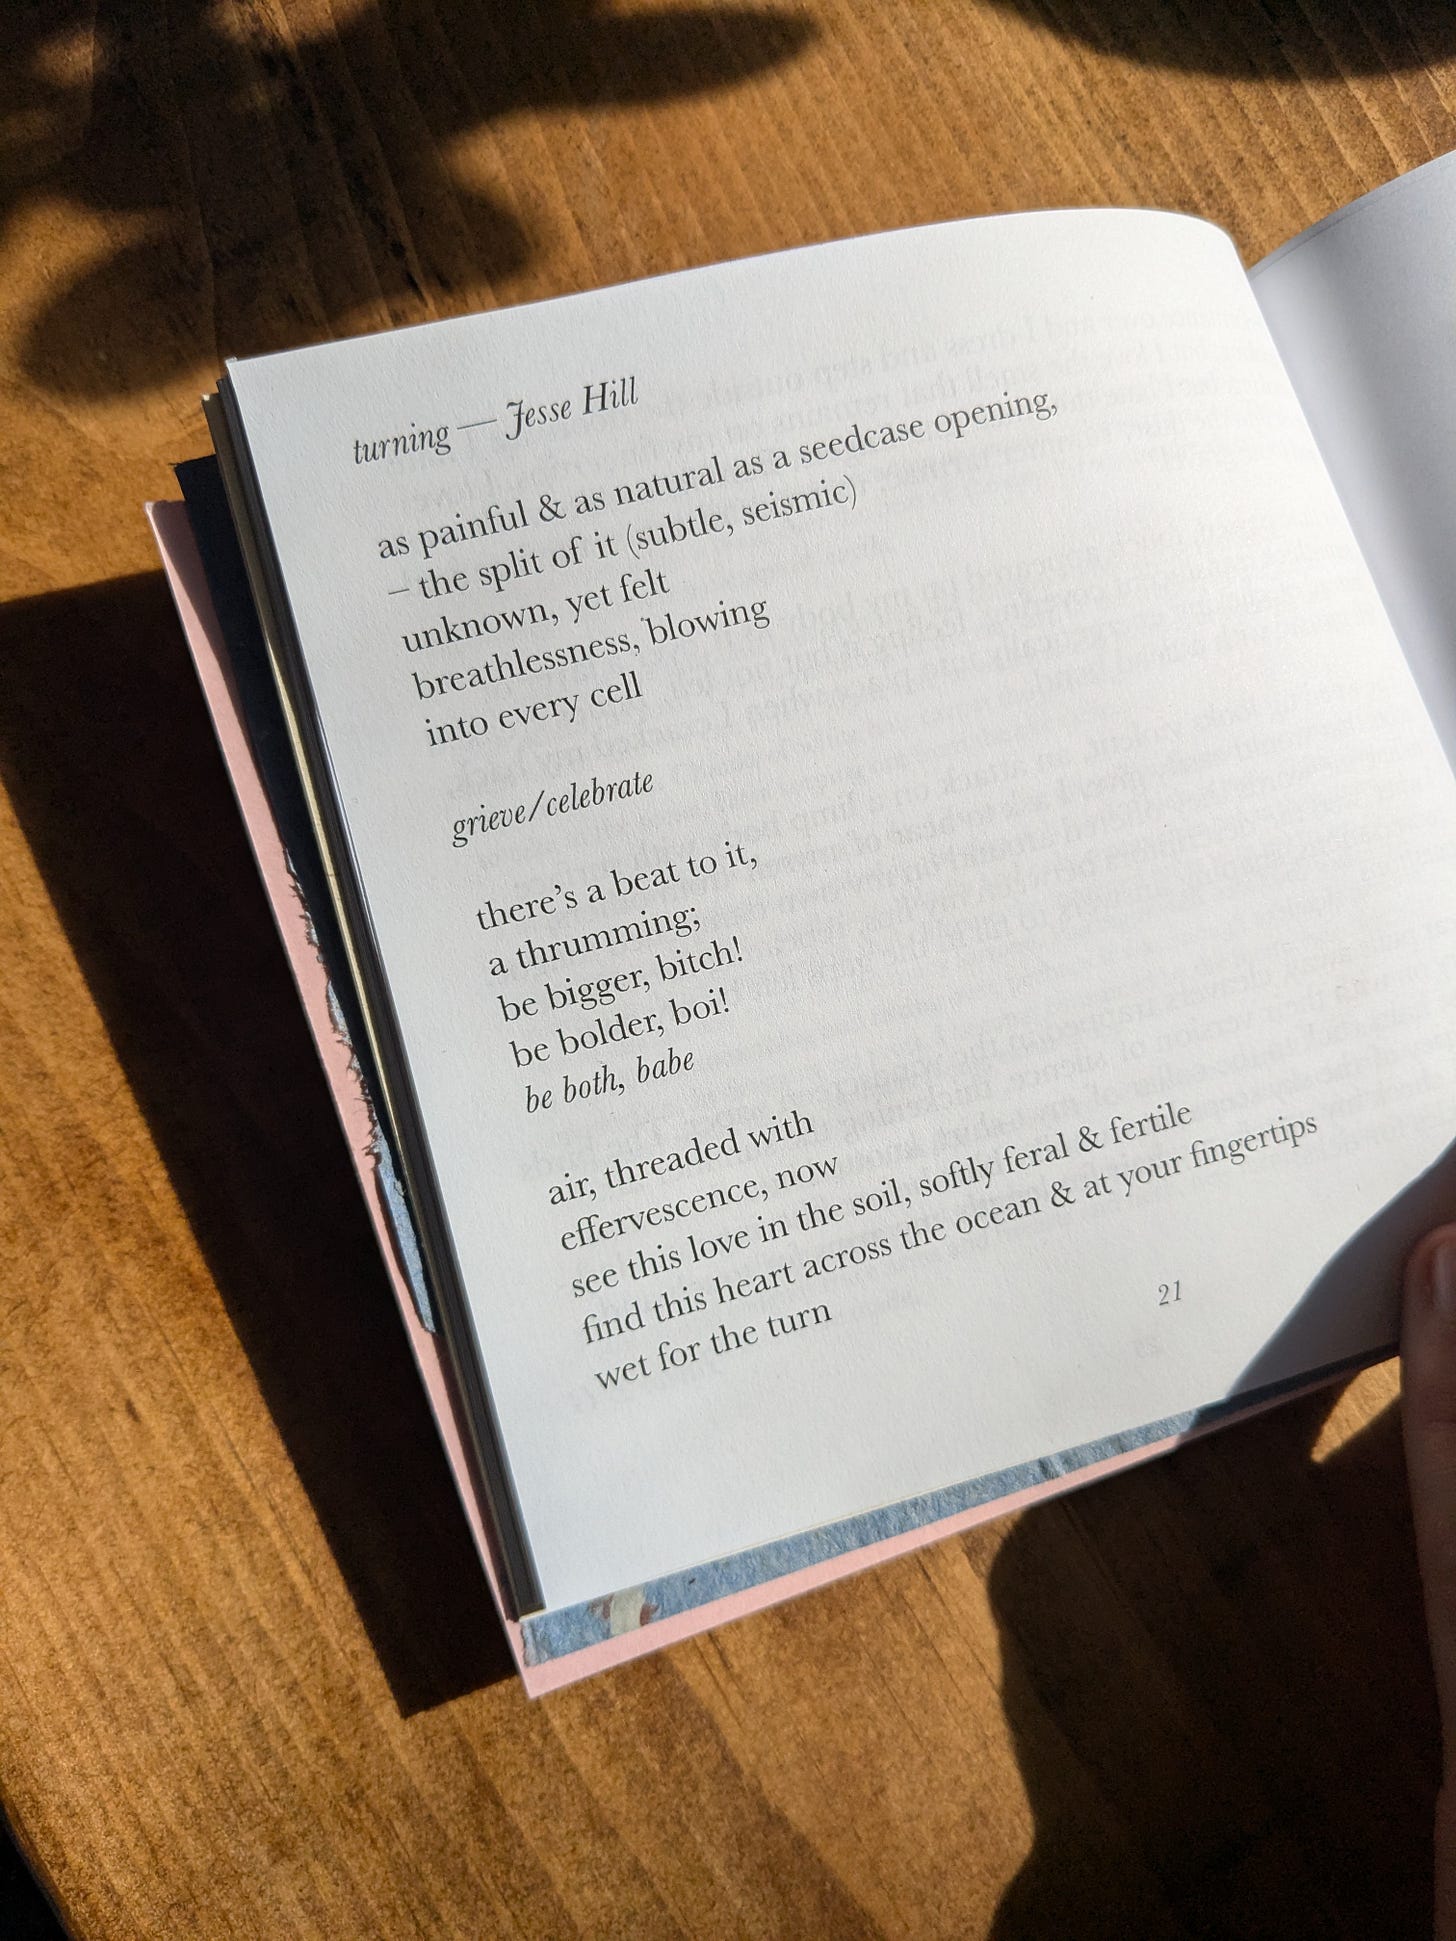 turning — Jesse Hill
as painful & as natural as a seedcase opening,
– the split of it (subtle, seismic)
unknown, yet felt
breathlessness, blowing
into every cell
grieve/celebrate
there’s a beat to it,
a thrumming;
be bigger, bitch!
be bolder, boi!
be both, babe
air, threaded with
effervescence, now
see this love in the soil, softly feral & fertile
find this heart across the ocean & at your fingertips
wet for the turn
21